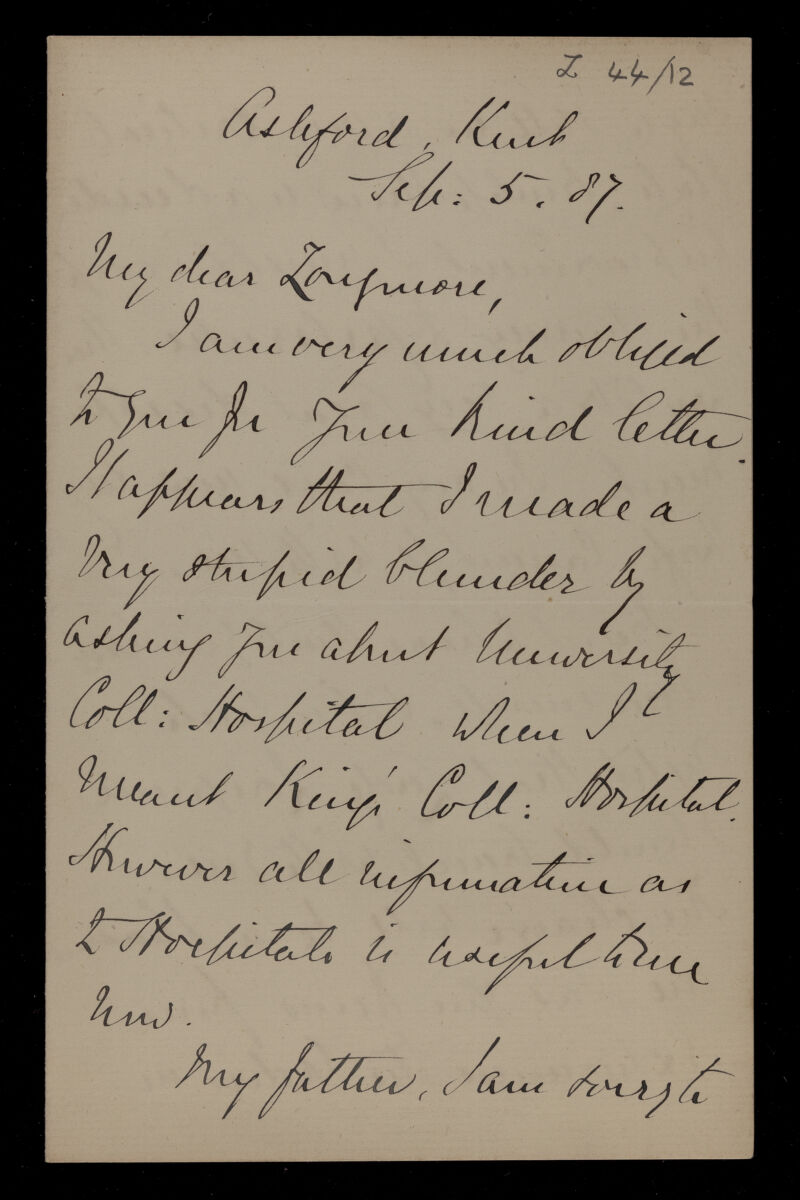 L 44/12
Ashford, Kent
Sep: 5. 87.
My dear Longmore,
I am very much obliged
to you for your kind letter.
It appears that I made a
very stupid blunder by
asking you about University
Coll: Hospital when I
meant King's Coll: Hospital.
However all information as
to Hospitals is useful to me
now.
My father, I am sorry to